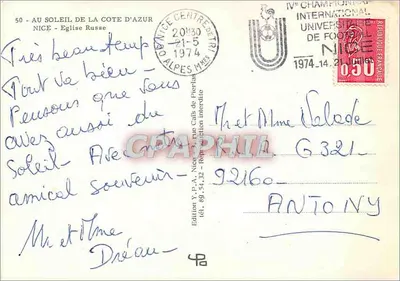 50 - AU SOLEIL DE LA COTE D'AZUR
NICE - Eglise Russe
NICE CENTRE
20H30
21-5
1974
ALPES MMES
IVe CHAMPIONNAT
INTERNATIONAL
UNIVERSITAIRE
DE FOOTBALL
NICE
1974-14.21
0,50
Très beau temps
Tout va bien -
Pensons que vous
avez aussi du
Soleil - Avec notre
amical souvenir -
Mr et Mme
Dréau -
Edition Y.P.A. Nice
tél. 89.54.32 - Reproduction interdite
CPAPHIL
Mr et Mme Valade
G321
92160
ANTONY